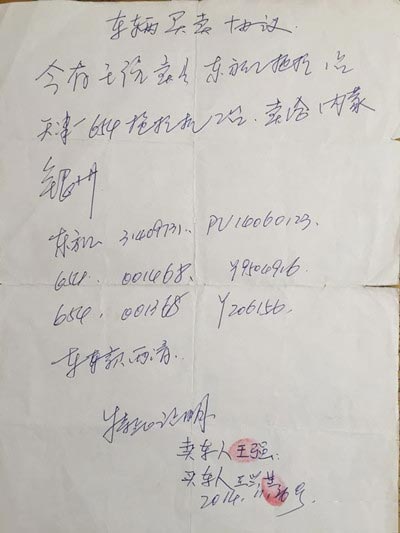 车辆买卖协议
今有王强卖东方红拖拉 1台
天津-654拖拉机2台.卖给内蒙

东方红 31409731. PU14060123.
654. 001468. Y9504916.
654. 001365 Y206156.
车款两清.
特此证明
卖车人 王强.
买车人
2014.11,30号